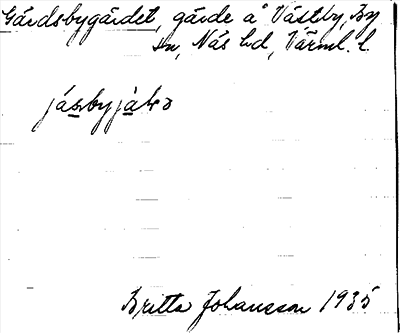 Gärdsbygärdet, gärde å Västby, By
sn, Näs hd, Värml. l.
Britta Johansson 1935